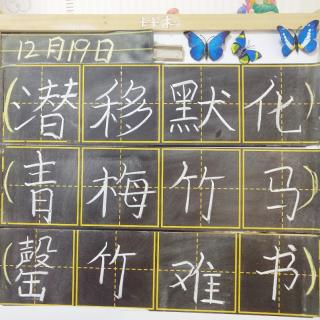 12月19日
(潜移默化)
(青梅竹马)
(罄竹难书)